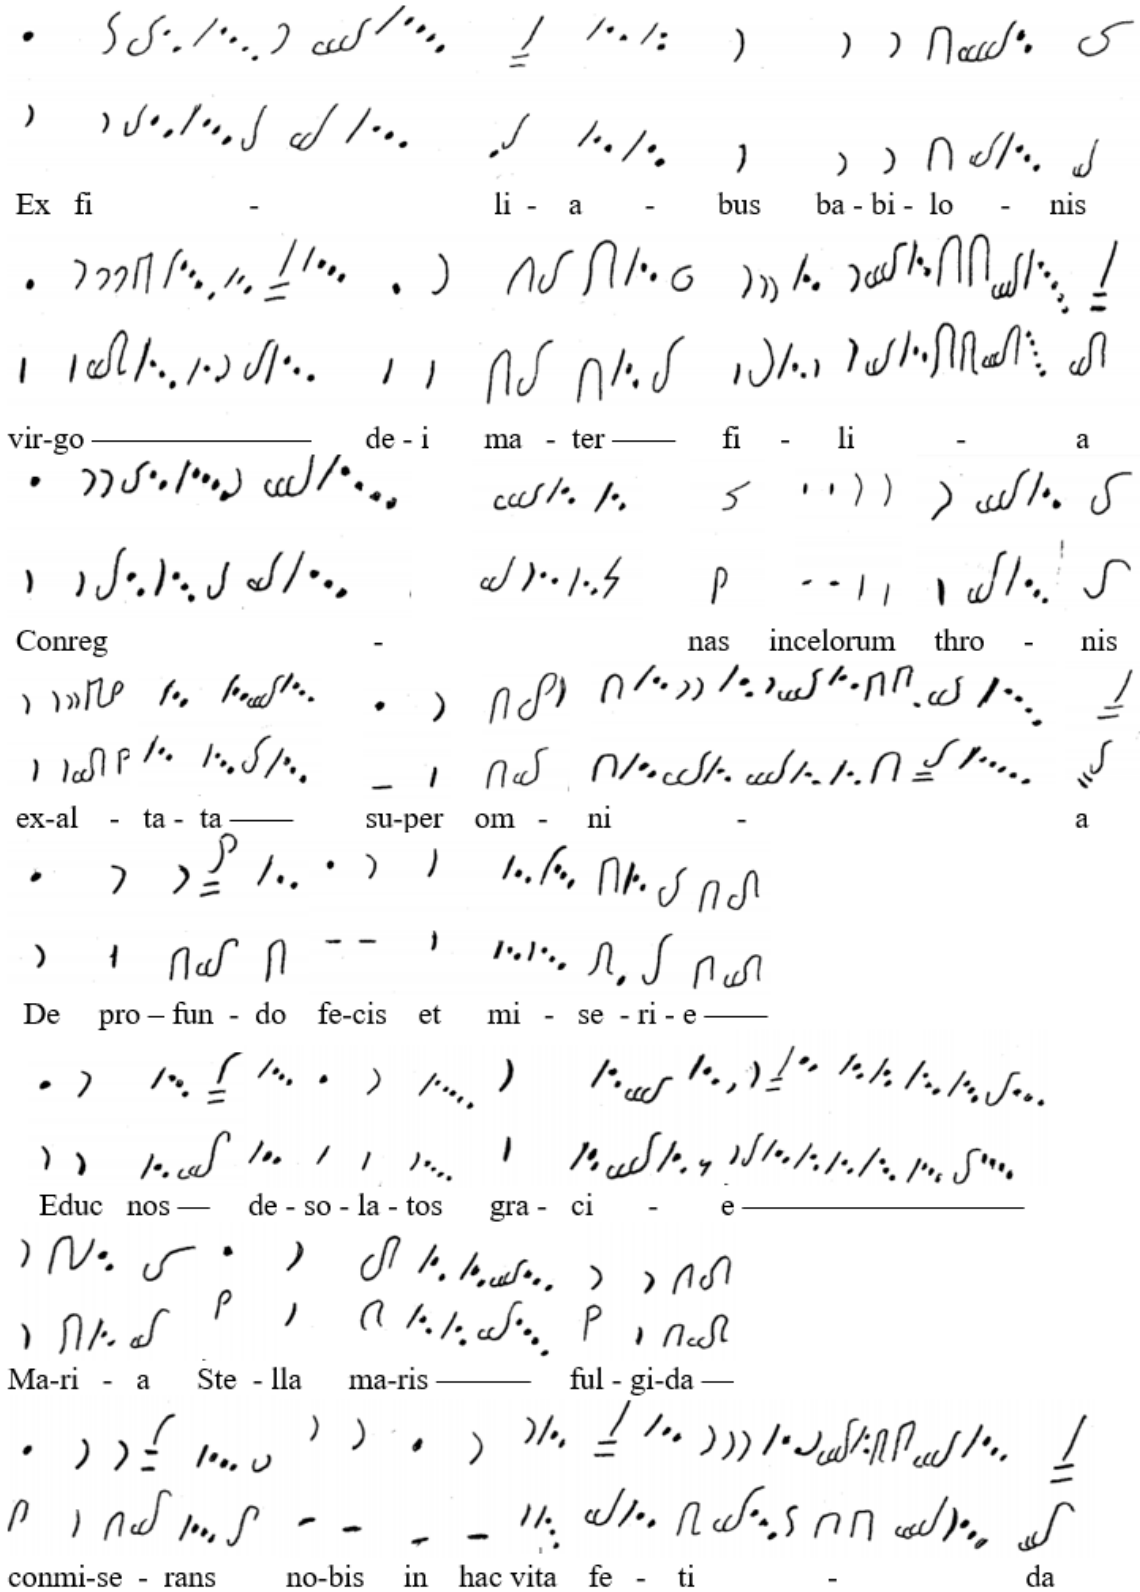 Ex fi - li - a - bus ba - bi - lo - nis
vir-go de - i ma - ter fi - li - a
Conreg - nas incelorum thro - nis
ex-al - ta - ta su-per om - ni - a
De pro – fun - do fe-cis et mi - se - ri - e
Educ nos — de - so - la - tos gra - ci - e
Ma-ri - a Ste - lla ma-ris ful - gi-da —
conmi-se - rans no-bis in hac vita fe - ti - da